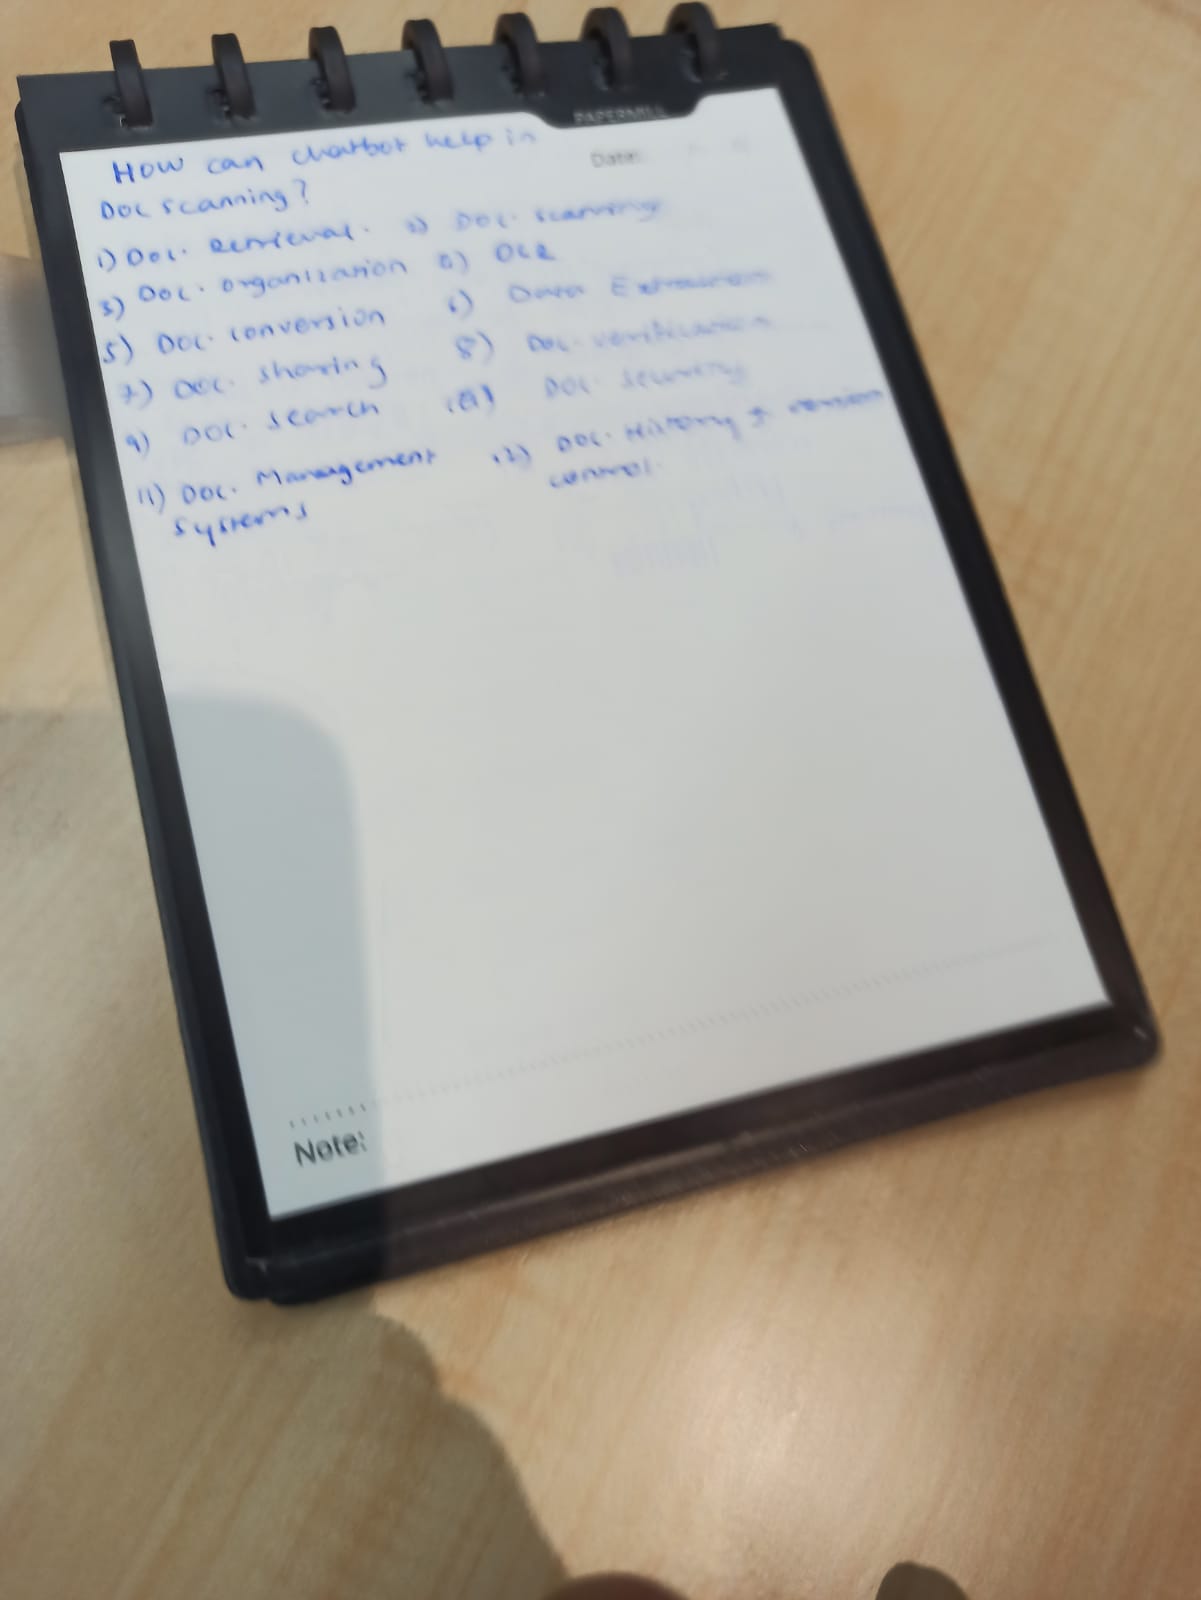 PAPERMILL
Date:
How can chatbot help in
Doc scanning?
1) Doc. Retrieval. 2) Doc. scanning
3) Doc. organization 4) OCR
5) Doc. conversion 6) Data Extraction
7) Doc. sharing 8) Doc. verification
9) Doc. search 10) Doc. security
11) Doc. Management 12) Doc. History & version
systems control.
Note: